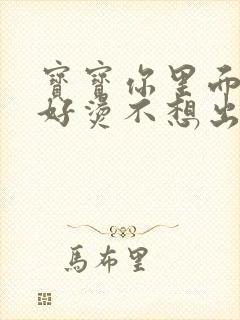 寶寶你里面
好燙不想出
馬布里